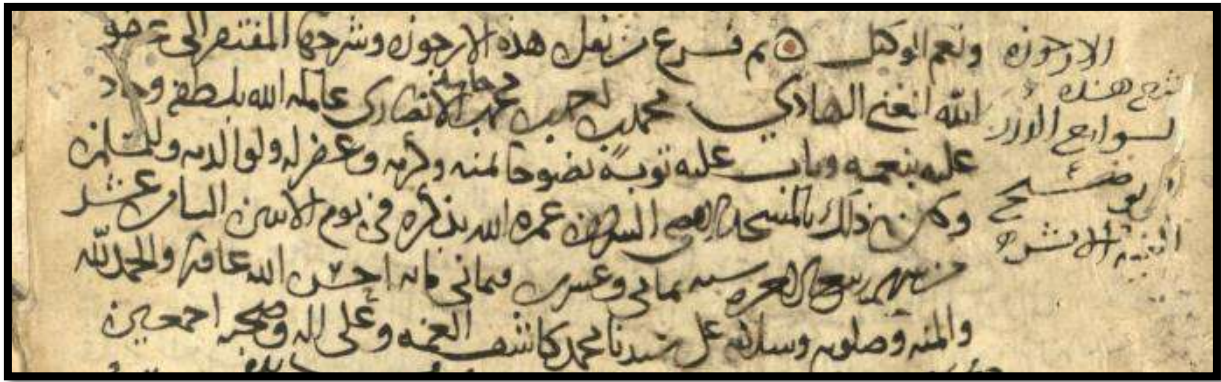 ونعم الوكيل ثم فرغ من نقل هذه الارجوزه وشرحها المفتقر الى عفو
الله الغني الهادي محمد بن احمد بن محمد الانصاري عامله الله بلطفه وجاد
عليه بنعمه وتاب عليه توبة نصوحا بمنه وكرمه وغفر له ولوالديه وللمسلمين
وكان ذلك بالمسجد الاقصى الشريف عمره الله بذكره في يوم الاثنين الثامن عشر
من شهر ربيع سنه ثماني وعشرين وثماني مايه احسن الله عاقبتها والحمد لله
والمنه وصلوته وسلامه على سيدنا محمد كاشف الغمه وعلى اله وصحبه اجمعين
الارجوزه
شرح هذه
لوامع الدرر